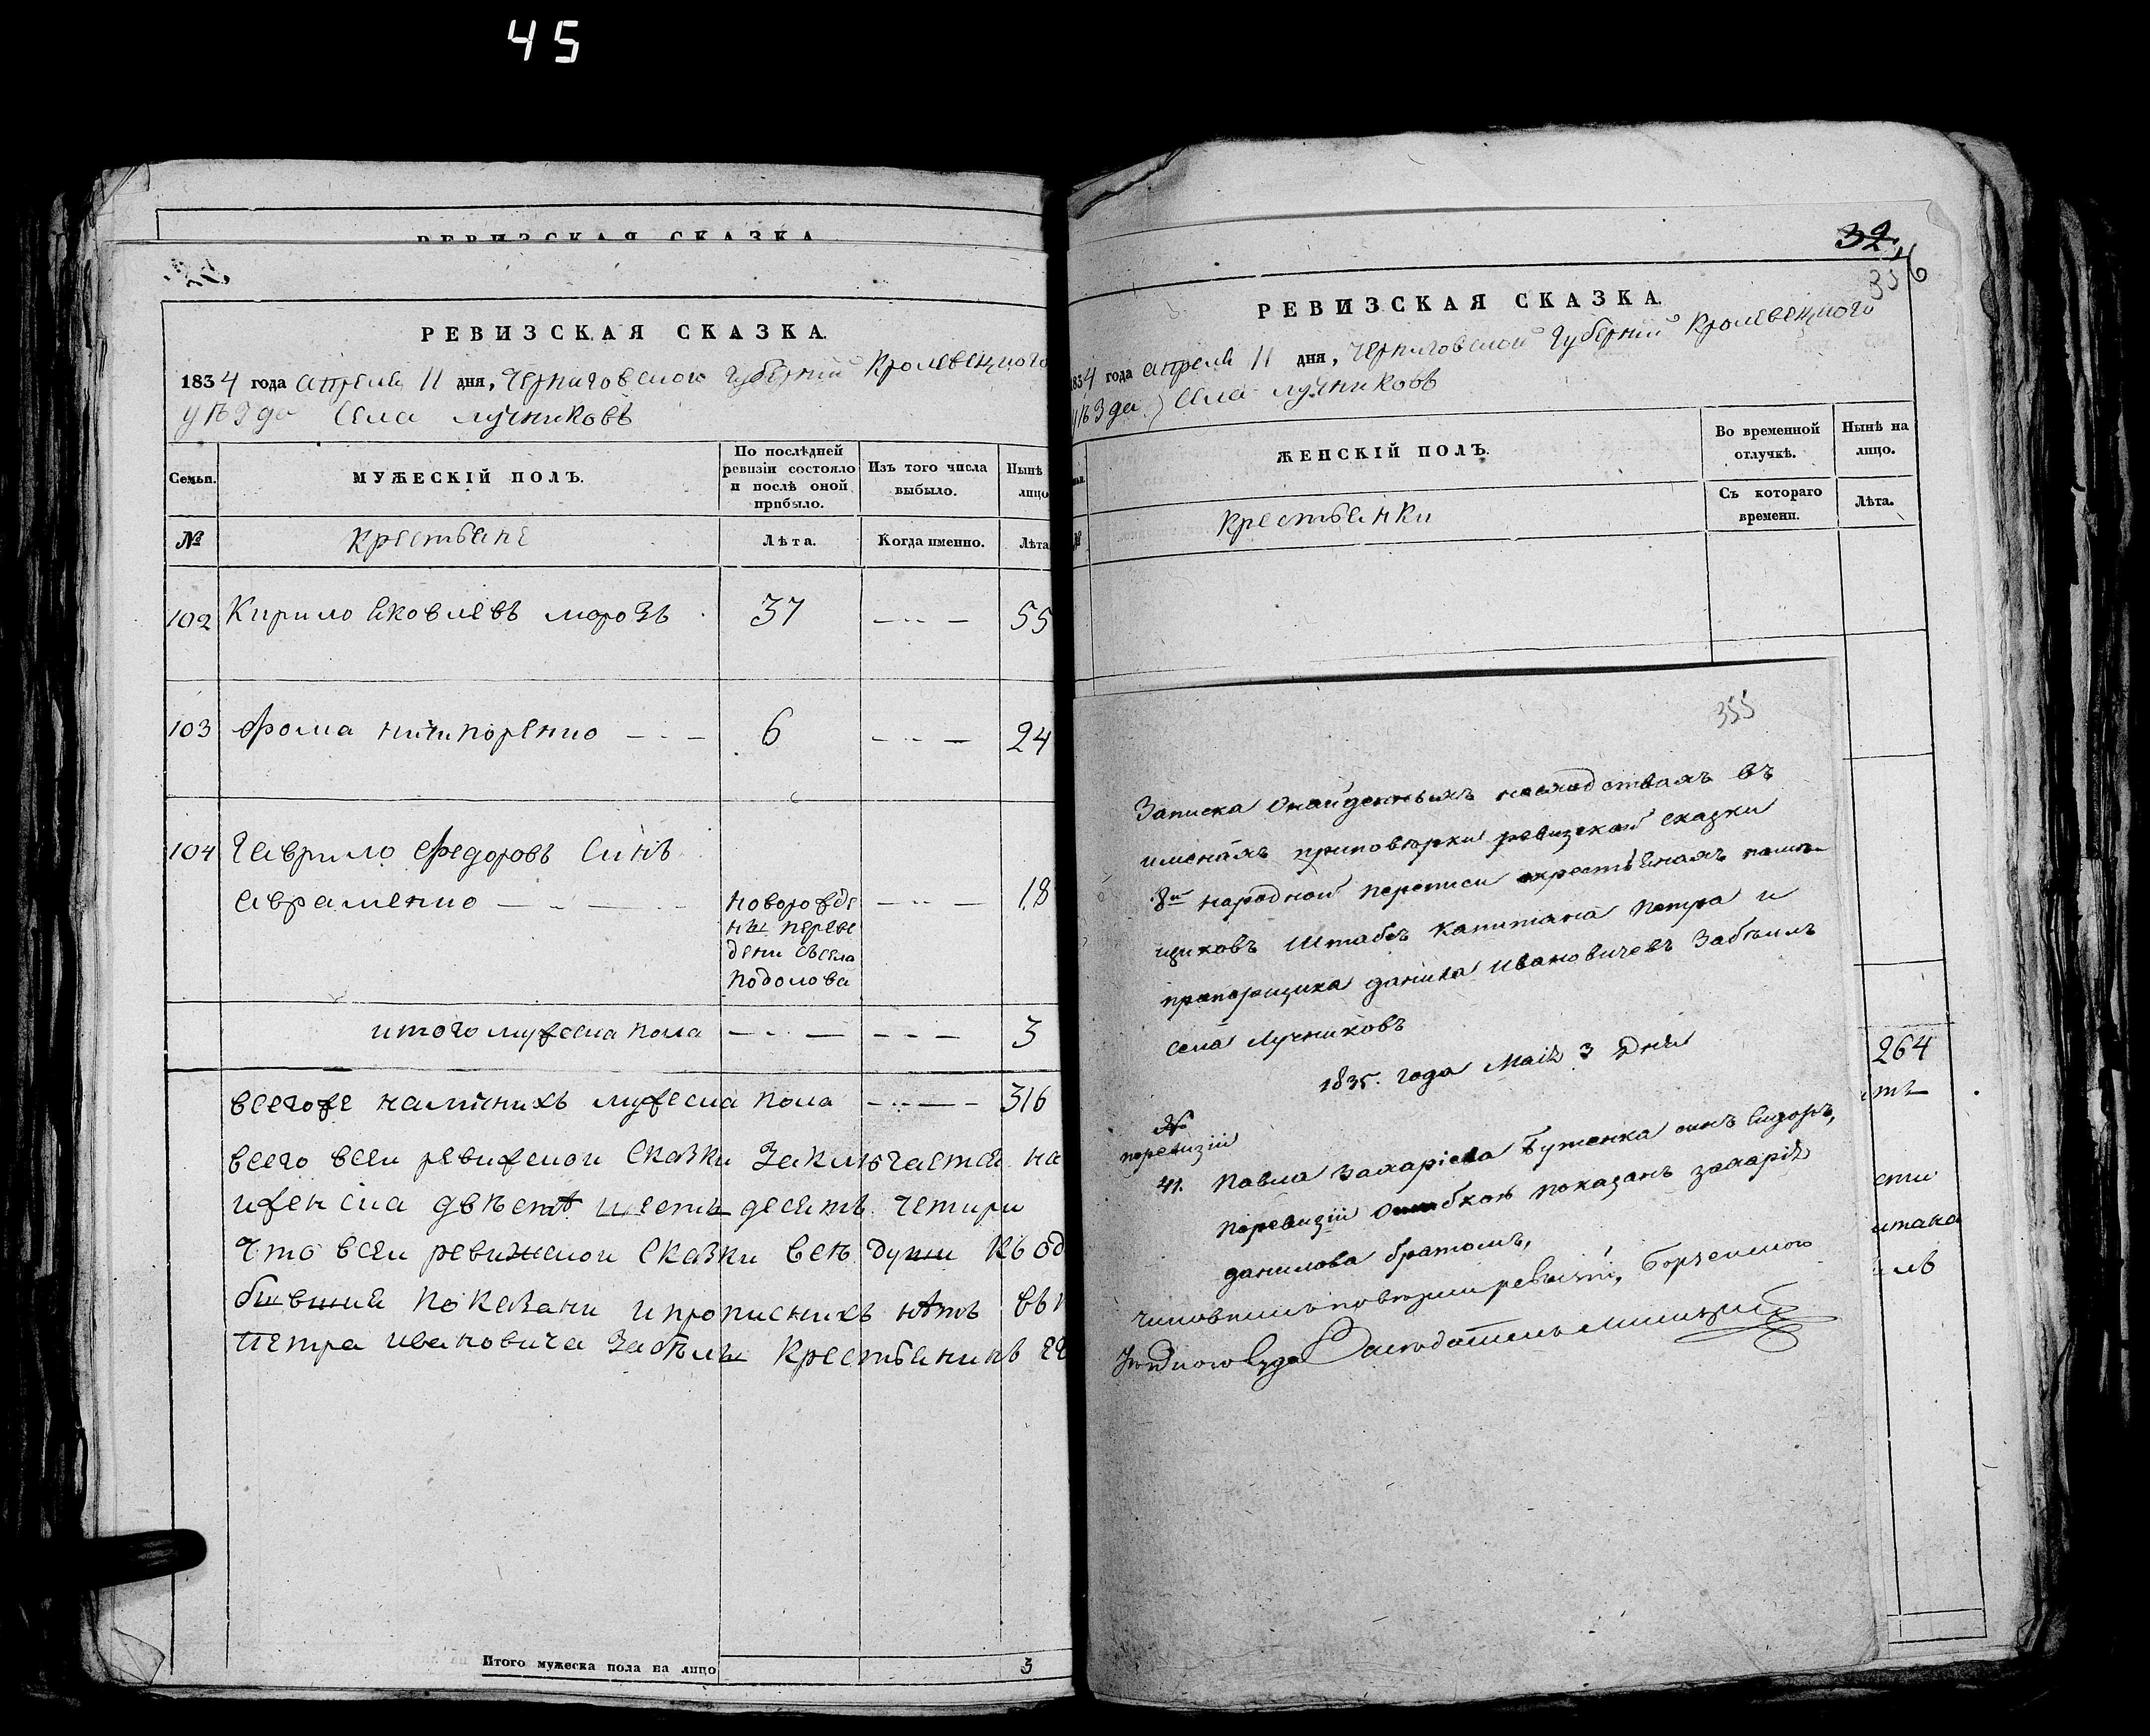 45
РЕВИЗСКАЯ СКАЗКА
РЕВИЗСКАЯ СКАЗКА.
1834 года апреля 11 дня, Черниговской губернии Кролевецкого
уѣзда Села Лучниковъ
Семьи.
МУЖЕСКІЙ ПОЛЪ.
По послѣдней ревизіи состояло и послѣ оной прибыло.
Изъ того числа выбыло.
Нынѣ лицо
№
крестьяне
Лѣта.
Когда именно.
Лѣта
102 Кирило Яковлевъ морозъ 37 55
103 Фома ничипоренко 6 24
104 Гаврило Федоровъ Синъ
Авраменко 18
новорожде
ни перене
дени съсела
подолова
итого мужеска пола 3
всегоже наличнихъ мужеска пола 316
всего всеи ревижской сказки Заключается на
иженска двѣстѣ шесть десятъ четири
Что всеи ревижской сказки всѣ души къ од
бывшия показани ипрописнихъ нѣтъ въ
Петра ивановича Забѣлы крестьянинъ
Итого мужеска пола на лицо 3
32
356
РЕВИЗСКАЯ СКАЗКА.
1834 года апреля 11 дня, Черниговской Губернии Кролевецкого
уѣзда Села лучниковъ
ЖЕНСКІЙ ПОЛЪ.
Во временной отлучкѣ.
Нынѣ на лицо.
крестьянки
Съ котораго времени.
Лѣта.
355
Записка Онайденныхъ въ
именахъ приповѣрки ревизской сказки
8й народной переписи крестьянамъ помѣ-
щиковъ Штабсъ Капитана Петра и
прапорщика данила Ивановичевъ Забѣлъ
села Лучниковъ
1835. года Маія 3 Дня
№
поревизіи
41. Павла Захаріева Бутенка синъ Сидоръ,
поревизіи Ошибкою показанъ захарія
данилова братомъ,
Чиновникъ повѣрки ревизіи, Борзенского
Суда Засѣдатель
264